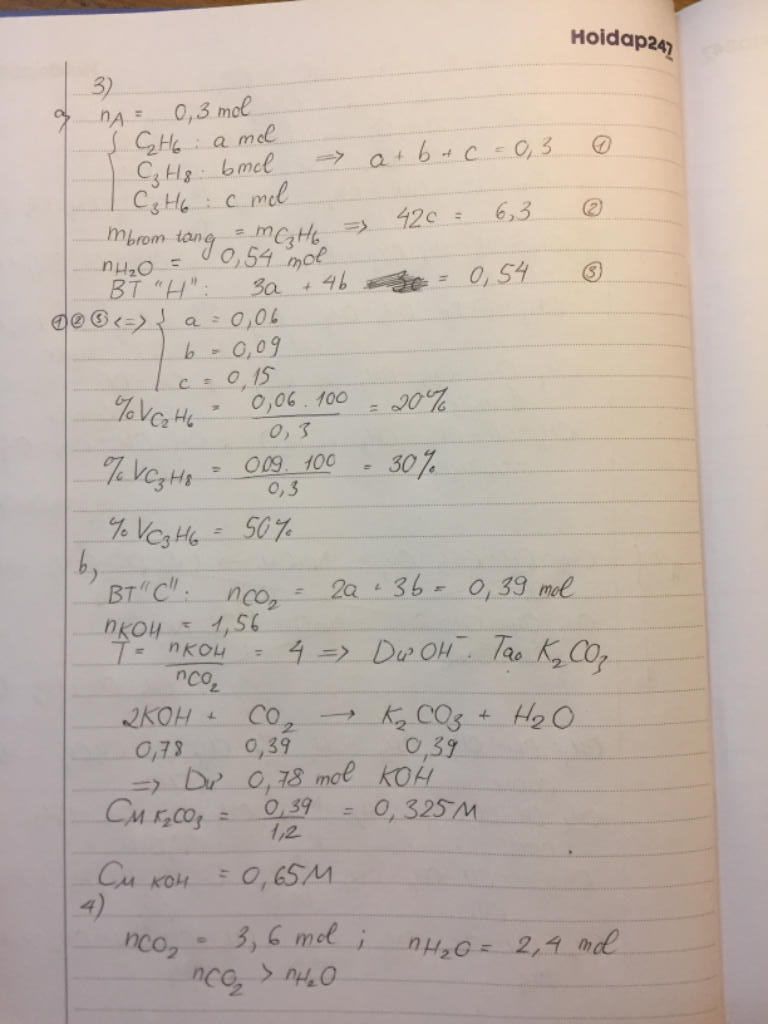 Hoidap247
3)
a, nA = 0,3 mol
{ C2H6 : a mol
C3H8 : b mol => a + b + c = 0,3 ①
C3H6 : c mol
mbrom tang = mC3H6 => 42c = 6,3 ②
nH2O = 0,54 mol
BT "H" : 3a + 4b = 0,54 ③
①②③ <=> { a = 0,06
b = 0,09
c = 0,15
%VC2H6 = 0,06 . 100 / 0,3 = 20%
%VC3H8 = 009. 100 / 0,3 = 30%
%VC3H6 = 50%
b,
BT "C" : nCO2 = 2a + 3b = 0,39 mol
nKOH = 1,56
T = nKOH / nCO2 = 4 => Dư OH-. Tạo K2CO3
2KOH + CO2 → K2CO3 + H2O
0,78 0,39 0,39
=> Dư 0,78 mol KOH
CM K2CO3 = 0,39 / 1,2 = 0,325M
CM KOH = 0,65M
4)
nCO2 = 3,6 mol ; nH2O = 2,4 mol
nCO2 > nH2O